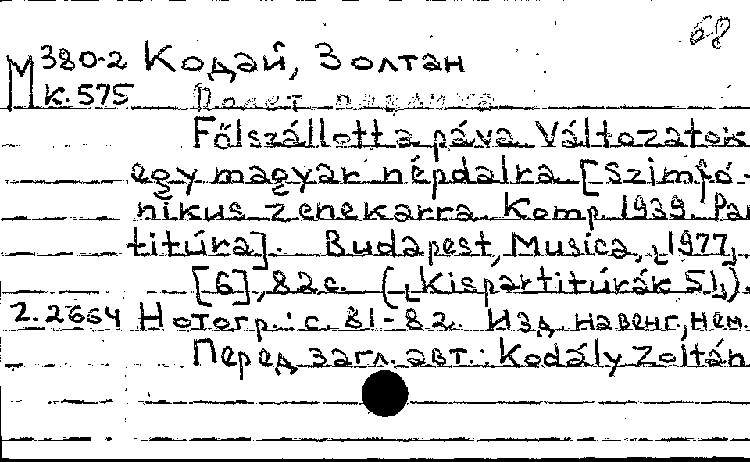 68
M 380-2 Кодай, Золтан
к. 575 Полет павлина
Fölszállott a páva. Változatok
egy magyar népdalra. [Szimfó-
nikus zenekarra. Komp. 1939. Par
titúra]. Budapest, Musica, [1977].
[6], 82 с. ([Kispartitúrák 51]).
2.2664 Нотогр.: с. 81-82. Изд. на венг., нем.
Перед загл. авт.: Kodály Zoltán